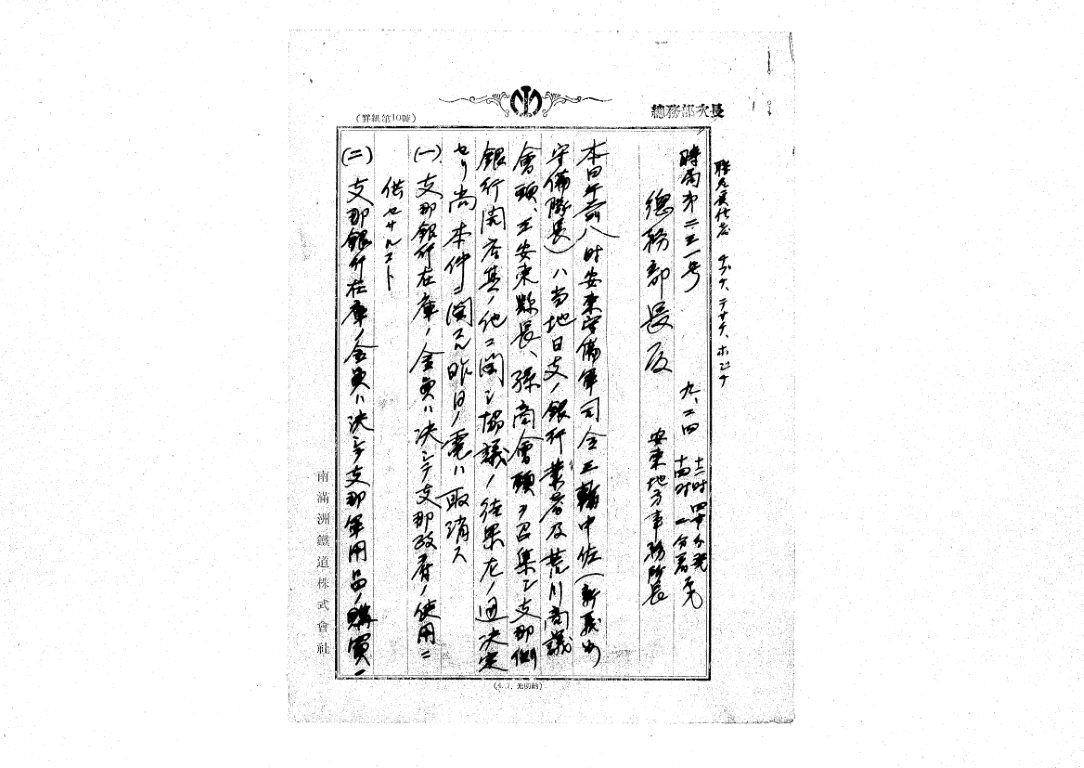 總務部次長
(罫紙第10號)
時局第二三一号
九、二四
十二時四十分発
十四時一分着
總務部長殿
安東地方事務所長
本日午前八時安東守備軍司令三輪中佐(新義州
守備隊長)ハ当地日支ノ銀行業者及荒川商議
會頭、王安東縣長、孫商會頭ヲ召集シ支那側
銀行開店其ノ他ニ関シ協議ノ結果左ノ通決定
セリ尚本件ニ関スル昨日ノ電ハ取消ス
(一)支那銀行在庫ノ金員ハ決シテ支那政府ノ使用ニ
供セサルコト
(二)支那銀行在庫ノ金員ハ決シテ支那軍用品ノ購買ニ
南滿洲鐵道株式會社